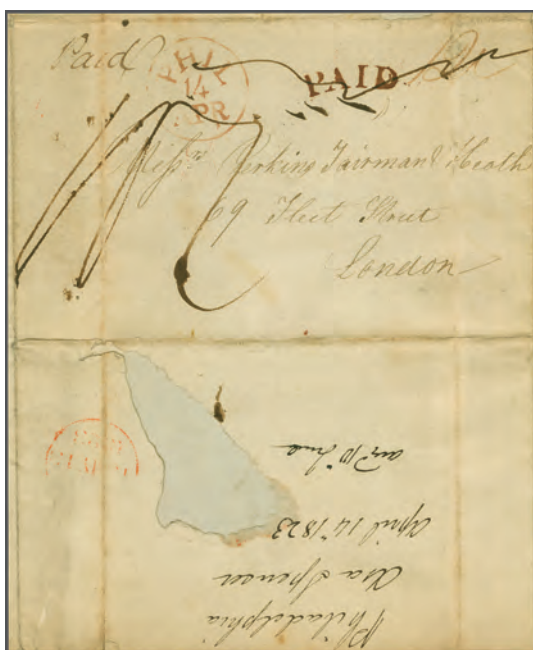 Paid
PHI
14
APR
PAID
Messrs Perkins Fairman & Heath
69 Fleet Street
London
Philadelphia
Asa Spencer
April 14 1823
ansd 10 June